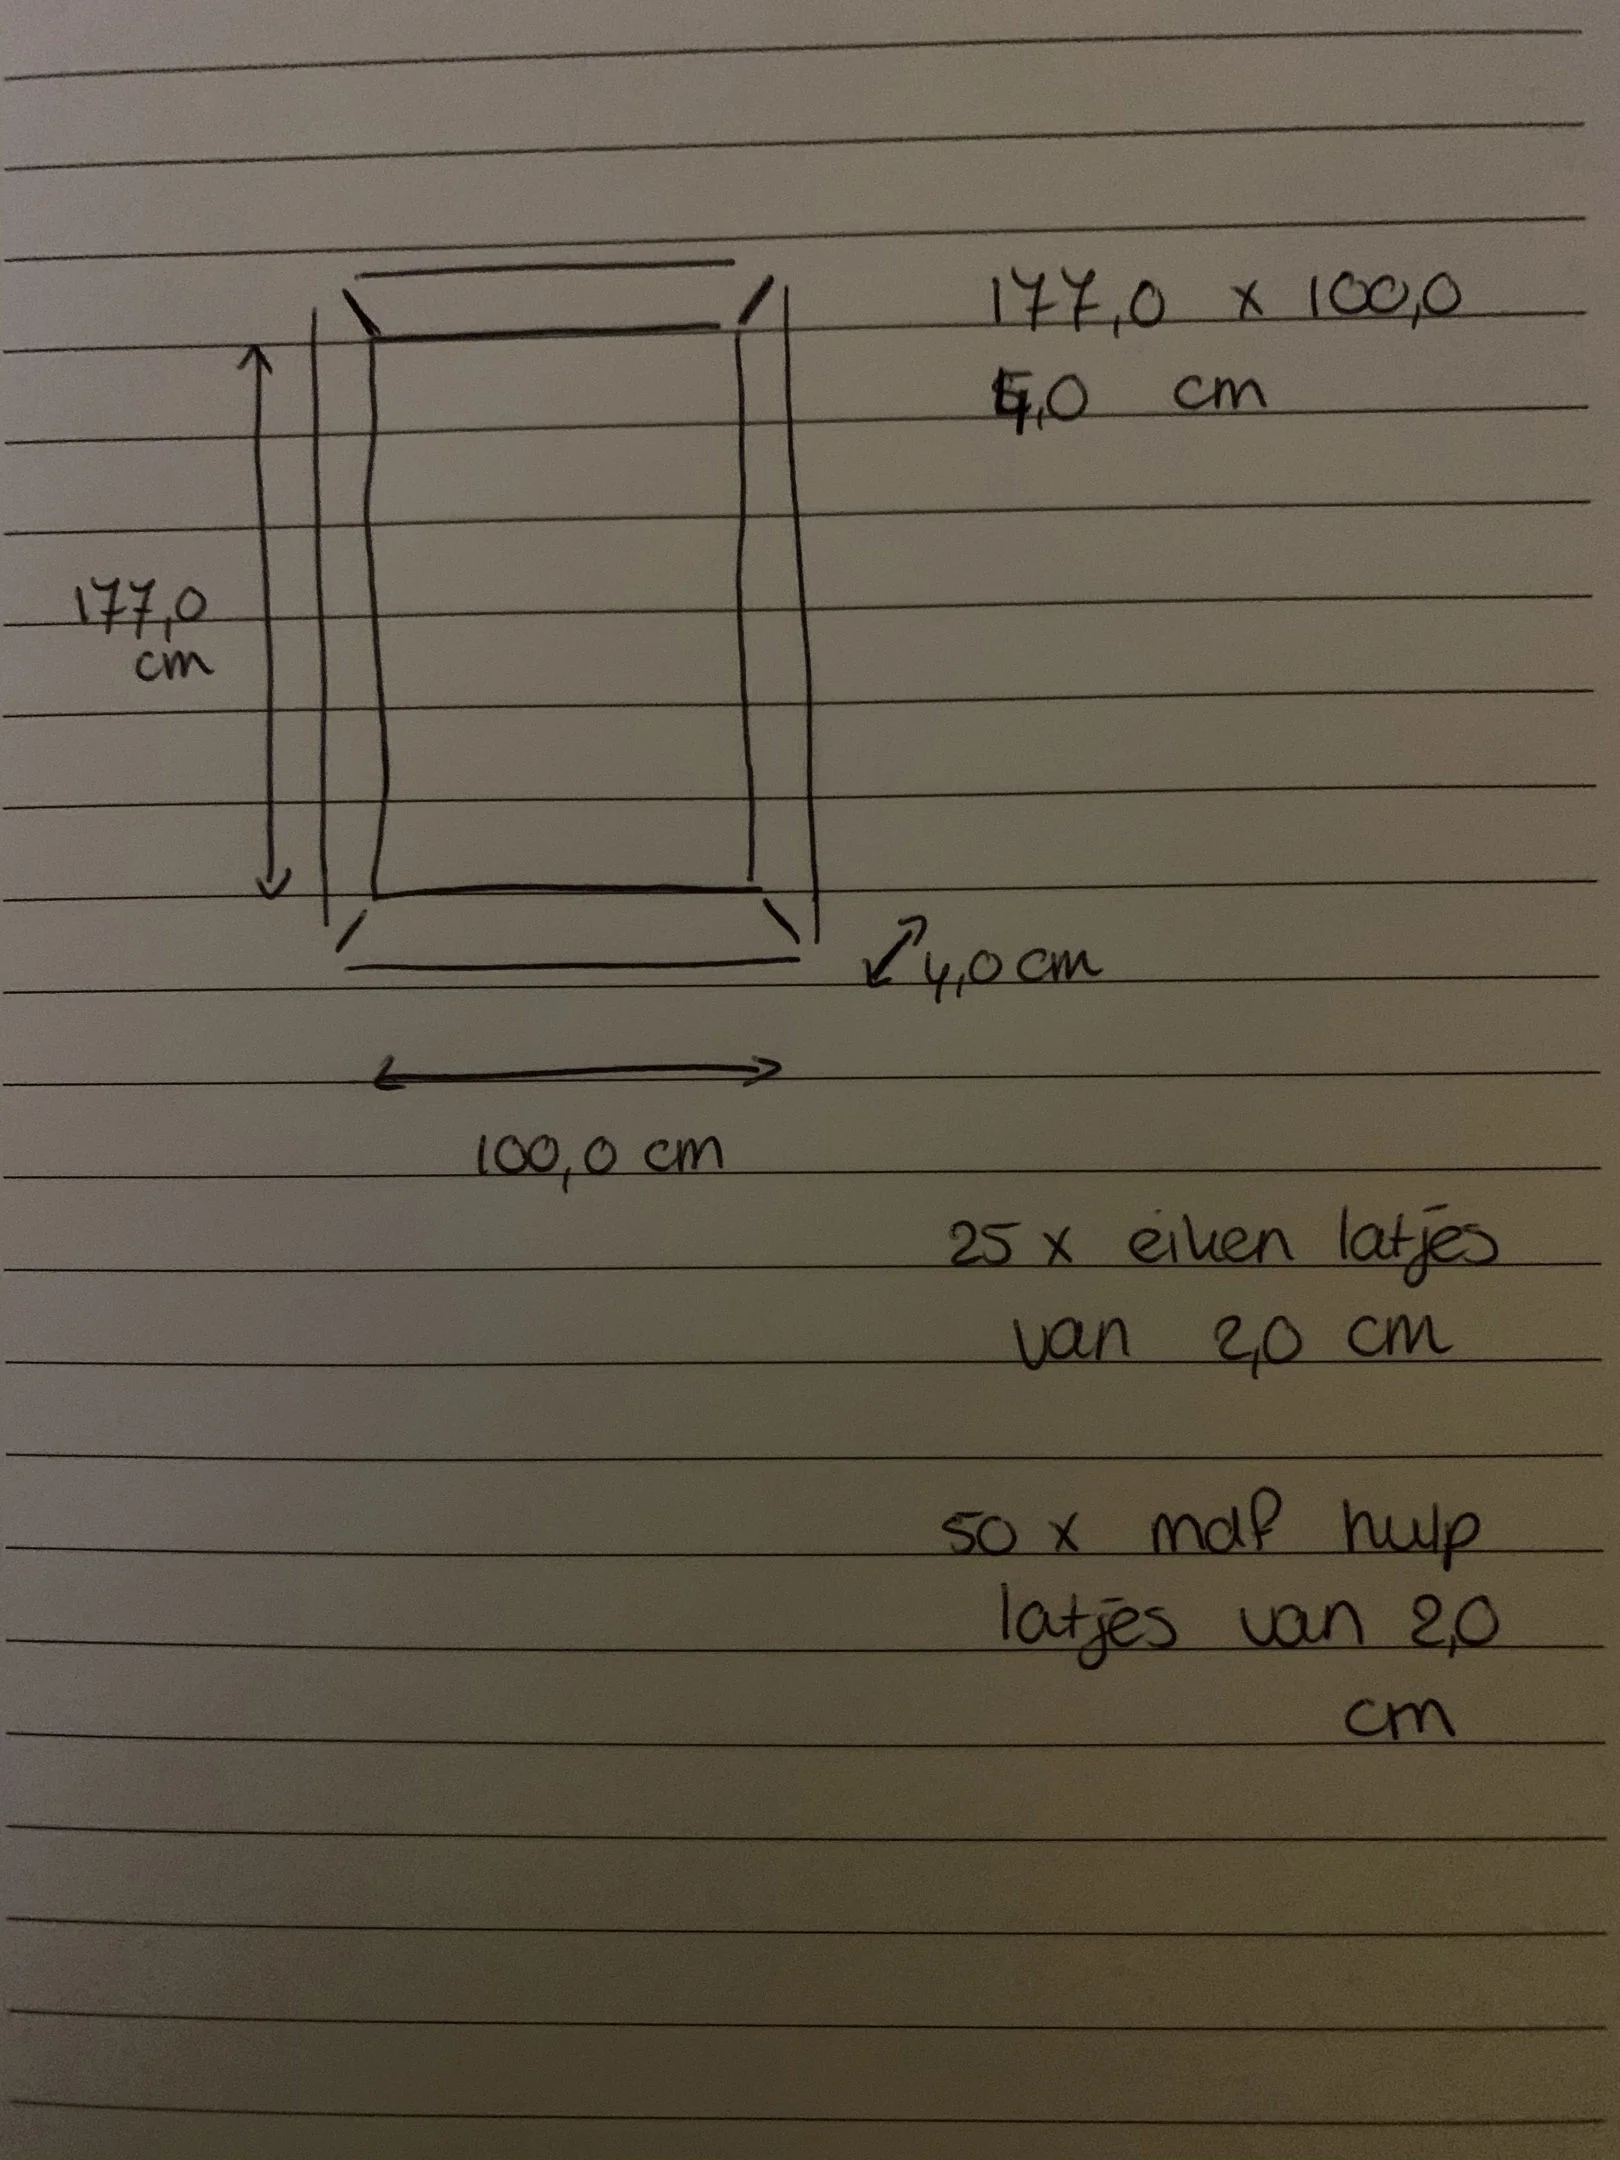 177,0 x 100,0
4,0 cm
177,0
cm
4,0 cm
100,0 cm
25 x eiken latjes
van 2,0 cm
50 x mdf hulp
latjes van 2,0
cm